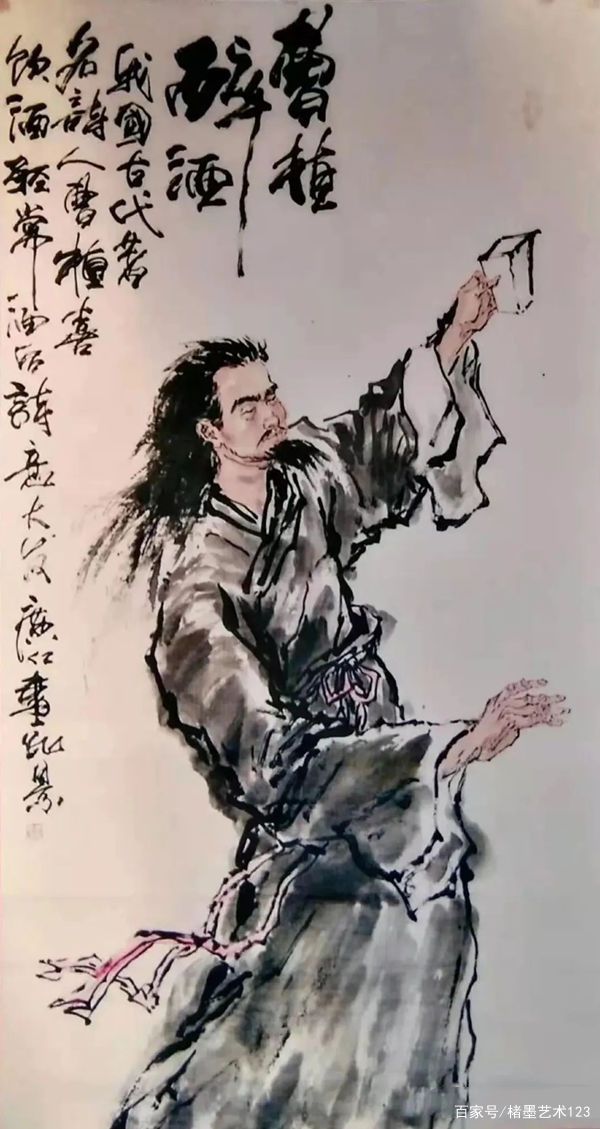 曹植
醉酒
我國古代著
名詩人曹植喜
飲酒經常酒后詩意大发廣仁畫
百家号/楮墨艺术123